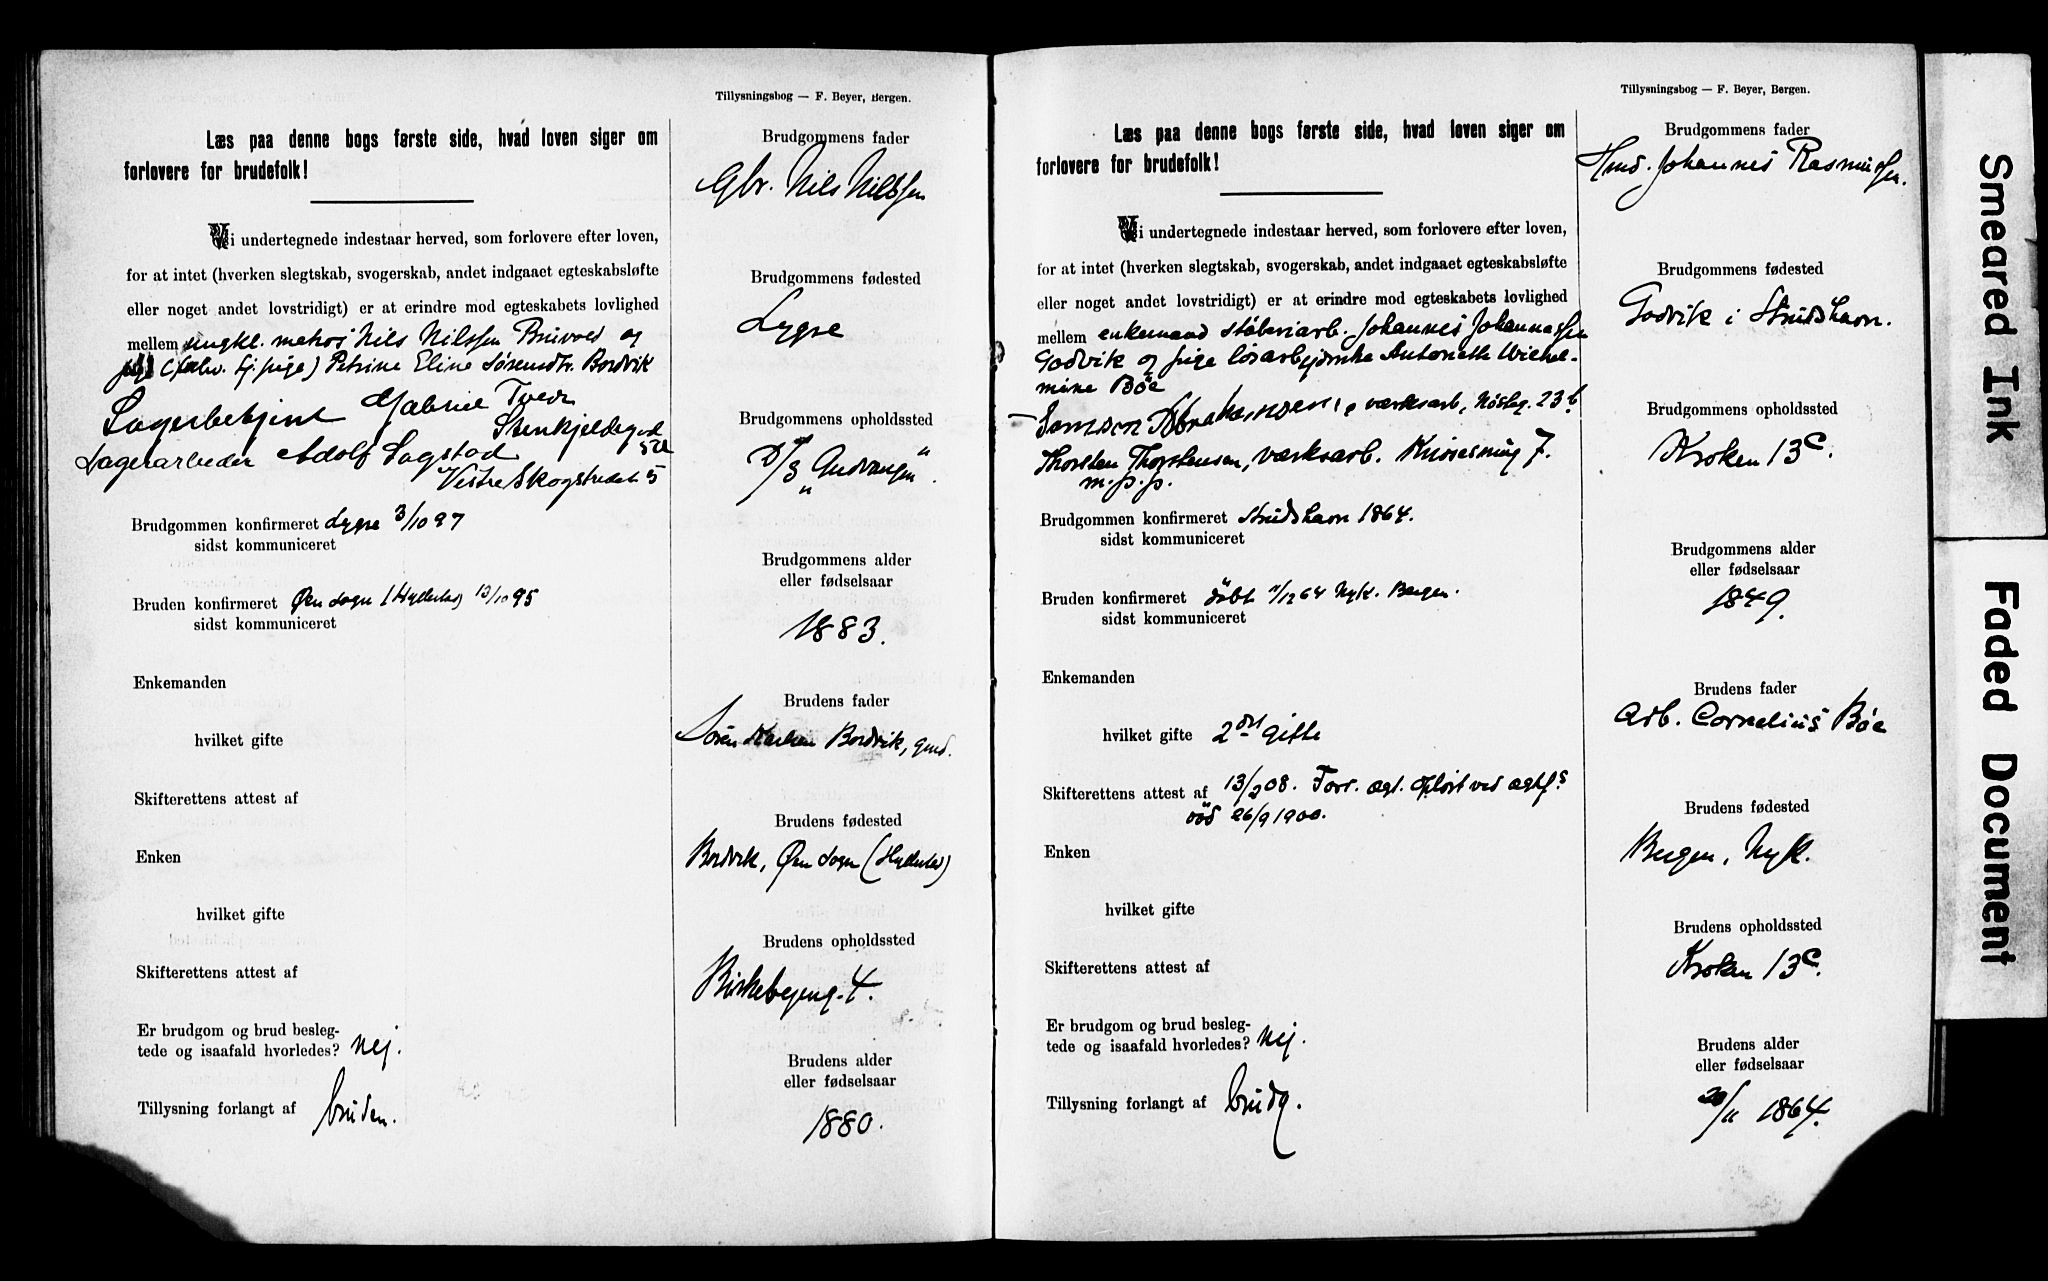 Tillysningsbog — F. Beyer, Bergen.
Læs paa denne bogs første side, hvad loven siger om
forlovere for brudefolk!
Vi undertegnede indestaar herved, som forlovere efter loven,
for at intet (hverken slegtskab, svogerskab, andet indgaaet egteskabsløfte
eller noget andet lovstridigt) er at erindre mod egteskabets lovlighed
mellem ungkl. matros Nils Nilssen Bruvold og
(fabr. tj. pige) Petrine Eline Sørensdtr. Bordvik
Lagerbetjent Gabriel Tvedt
Stenkjeldegod
52a
Lagerarbeider Adolf Sagstad
Vestre Skogstredet 5
Brudgommen konfirmeret Lygre 3/10 97
sidst kommuniceret
Bruden konfirmeret Øen sogn (Hyllestad) 13/10 95
sidst kommuniceret
Enkemanden
hvilket gifte
Skifterettens attest af
Enken
hvilket gifte
Skifterettens attest af
Er brudgom og brud besleg-
tede og isaafald hvorledes? Nej.
Tillysning forlangt af bruden.
Brudgommens fader
Gbr. Nils Nilssen
Brudgommens fødested
Lygre
Brudgommens opholdssted
D/S „Gudvangen“.
Brudgommens alder
eller fødselsaar
1883.
Brudens fader
Søren Bordvik, gmd.
Brudens fødested
Bordvik, Øen sogn (Hyllestad)
Brudens opholdssted
Birkebejnerg. 4.
Brudens alder
eller fødselsaar
1880.
Tillysningsbog — F. Beyer, Bergen.
Læs paa denne bogs første side, hvad loven siger om
forlovere for brudefolk!
Vi undertegnede indestaar herved, som forlovere efter loven,
for at intet (hverken slegtskab, svogerskab, andet indgaaet egteskabsløfte
eller noget andet lovstridigt) er at erindre mod egteskabets lovlighed
mellem enkemand støberiarb. Johannes Johannessen
Godvik og pige løsarbejderske Antonette Wilhel-
mine Böe
Samson Abrahamsen, værksarb, Nøsteg. 23 b
Thorsten Thorstensen, værksarb. Knøsesmug 7.
m. p. p.
Brudgommen konfirmeret Strudshavn 1864.
sidst kommuniceret
Bruden konfirmeret döbt 11/12 64 Nyk. Bergen.
sidst kommuniceret
Enkemanden
hvilket gifte 2det Gifte
Skifterettens attest af 13/2 08. Forr. ægt. opløst ved ægtf.s
död 26/9 1900.
Enken
hvilket gifte
Skifterettens attest af
Er brudgom og brud besleg-
tede og isaafald hvorledes? Nej.
Tillysning forlangt af brudg.
Brudgommens fader
Hmd. Johannes Rasmussen.
Brudgommens fødested
Godvik i Strudshavn.
Brudgommens opholdssted
Kroken 13c.
Brudgommens alder
eller fødselsaar
1849.
Brudens fader
Arb. Cornelius Böe
Brudens fødested
Bergen, Nyk.
Brudens opholdssted
Kroken 13c.
Brudens alder
eller fødselsaar
20/11 1864.
Smeared Ink
Faded Document